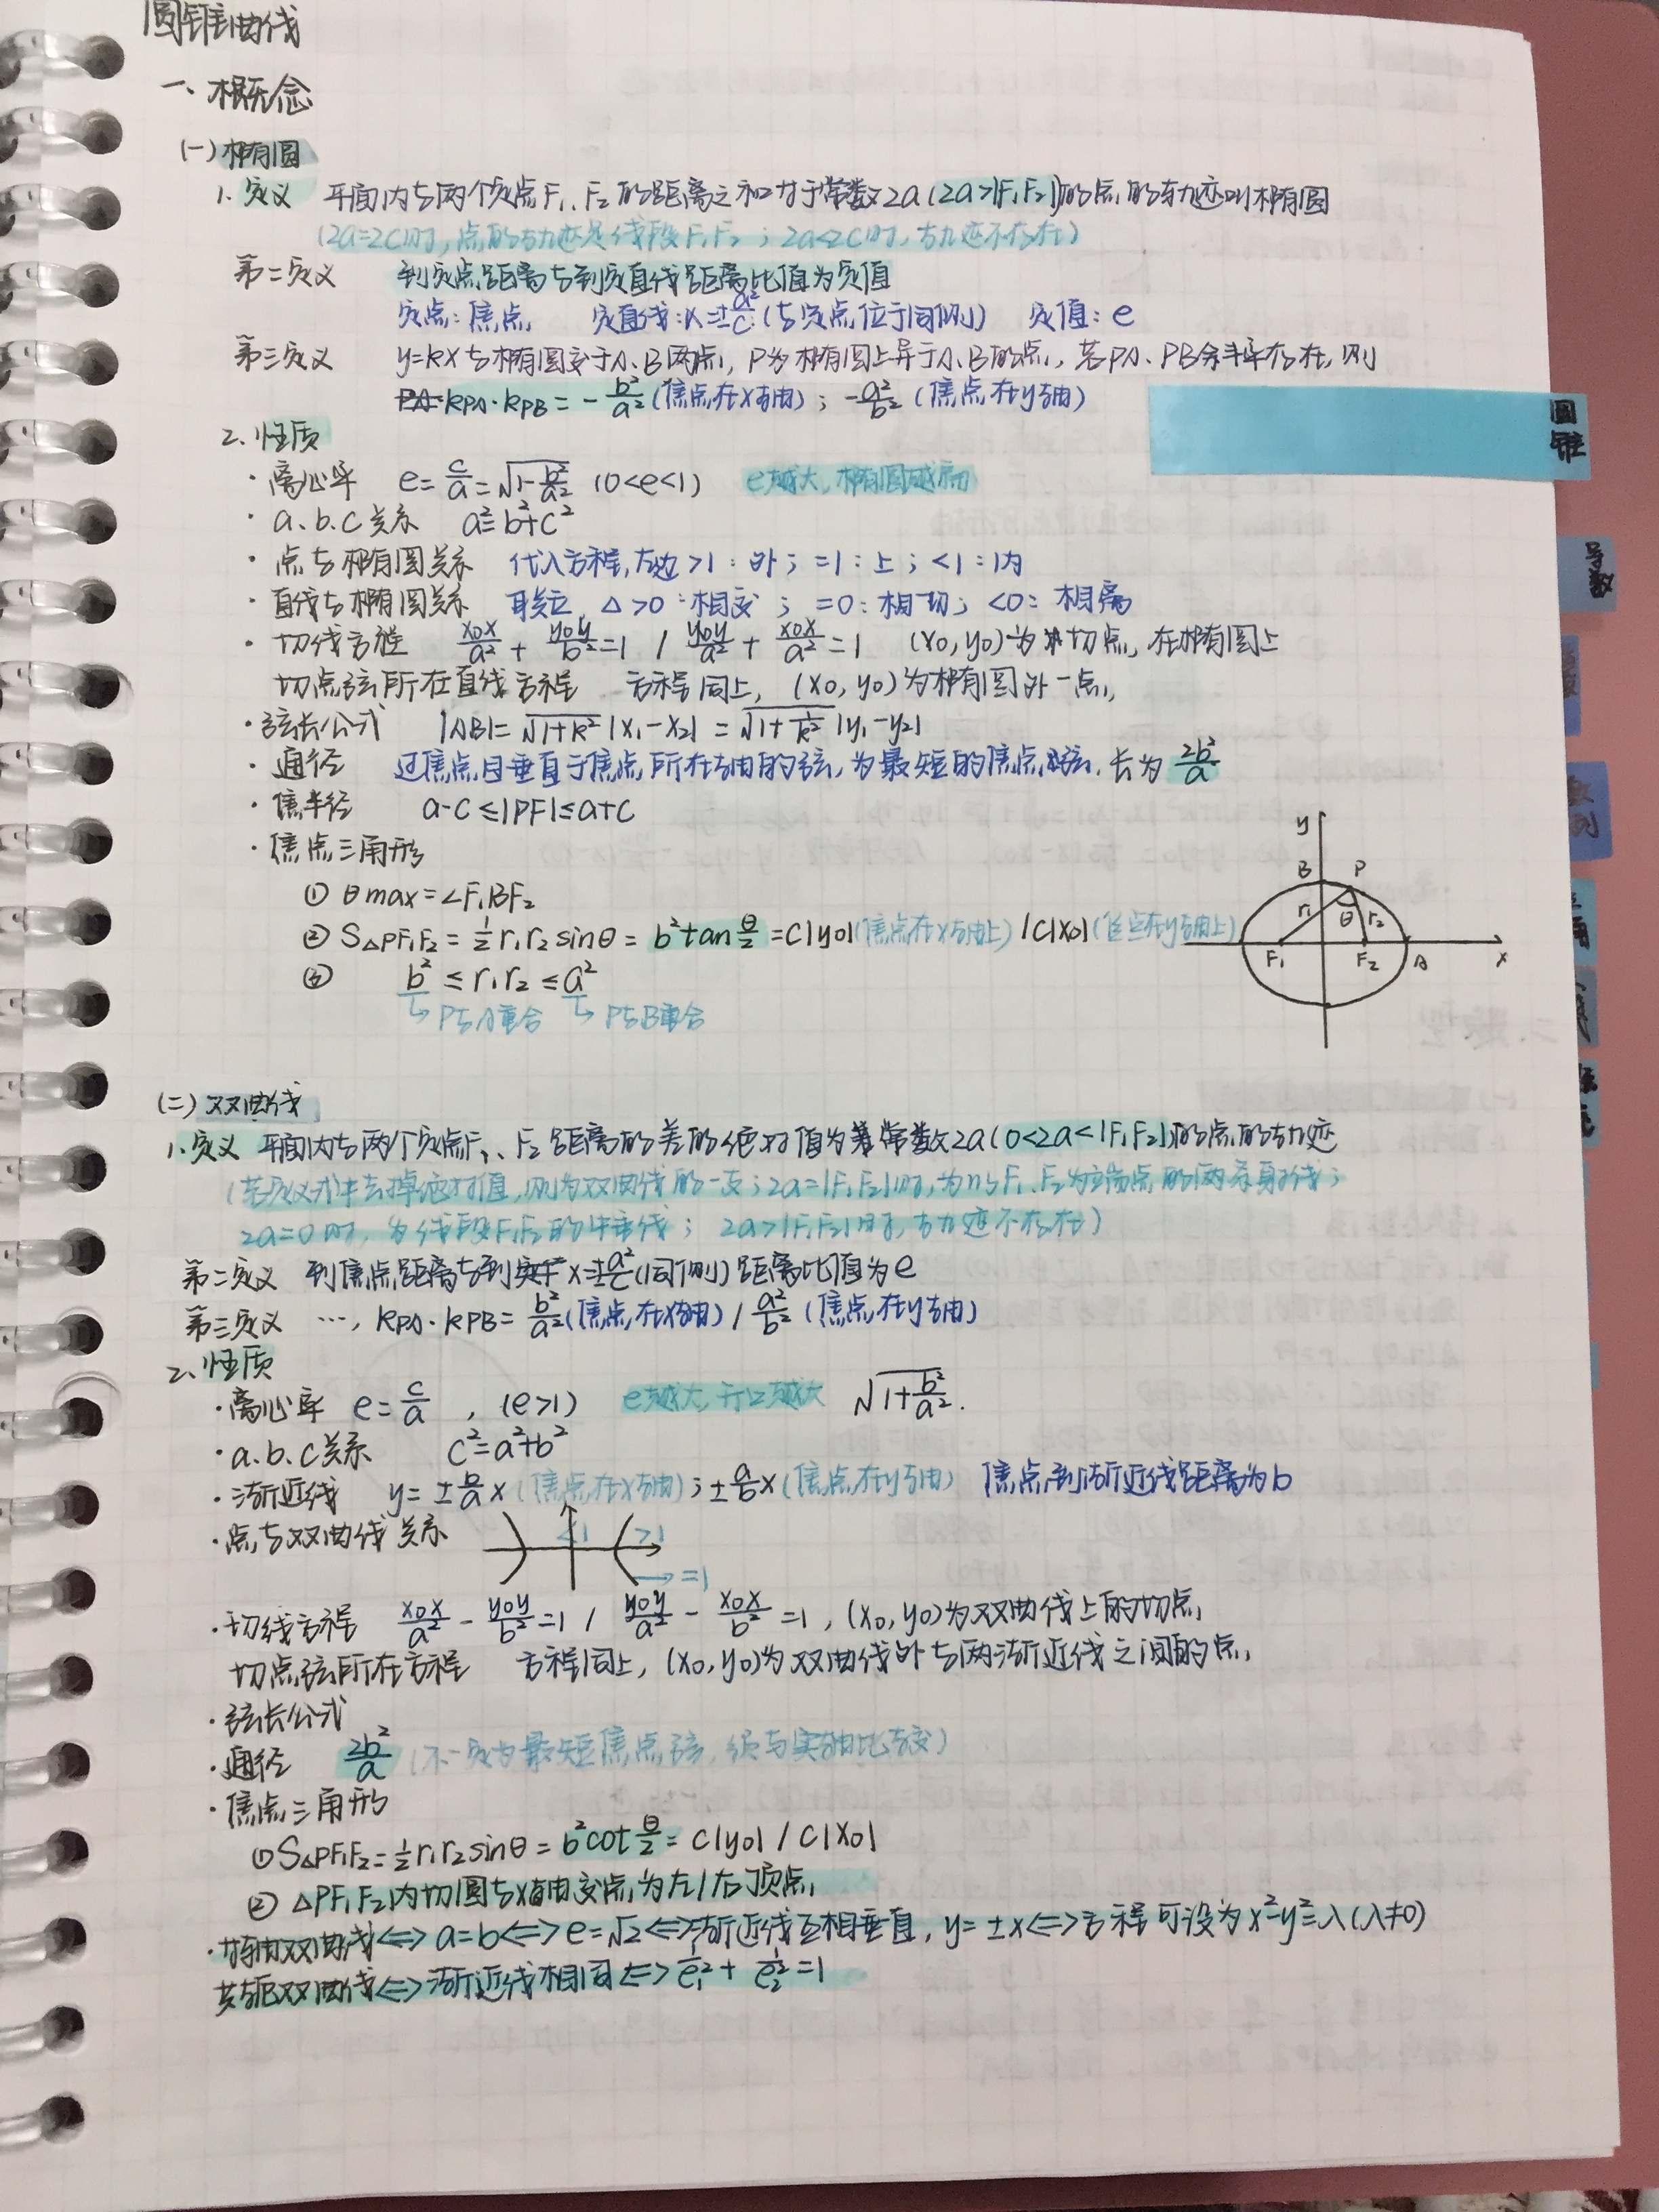 圆锥曲线
一、概念
(一)椭圆
1. 定义 平面内与两个定点F₁、F₂的距离之和等于常数2a(2a>|F₁F₂|)的点的轨迹叫椭圆
(2a=2c时,点的轨迹是线段F₁F₂;2a<2c时,轨迹不存在)
第二定义 到定点距离与到定直线距离比值为定值
定点:焦点 定直线:x=±a²/c(与定点位于同侧) 定值:e
第三定义 y=kx与椭圆交于A、B两点,P为椭圆上异于A、B的点,若PA、PB斜率存在,则
kPA·kPB=-b²/a²(焦点在x轴);-a²/b²(焦点在y轴)
2. 性质
·离心率 e=c/a=√(1-b²/a²) (0<e<1) e越大,椭圆越扁
·a.b.c关系 a²=b²+c²
·点与椭圆关系 代入方程,左边>1:外;=1:上;<1:内
·直线与椭圆关系 联立 Δ>0:相交;=0:相切;<0:相离
·切线方程 x₀x/a²+y₀y/b²=1 / y₀y/a²+x₀x/a²=1 (x₀,y₀)为切点,在椭圆上
切点弦所在直线方程 方程同上,(x₀,y₀)为椭圆外一点
·弦长公式 |AB|=√(1+k²)|x₁-x₂|=√(1+1/k²)|y₁-y₂|
·通径 过焦点且垂直于焦点所在轴的弦,为最短的焦点弦,长为2b²/a
·焦半径 a-c≤|PF|≤a+c
·焦点三角形
① θmax=∠F₁BF₂
② S△PF₁F₂=½r₁r₂sinθ=b²tanθ/2=c|y₀|(焦点在x轴上)/c|x₀|(焦点在y轴上)
③ b²≤r₁r₂≤a²
↳P与A重合 ↳P与B重合
y
B P
r₁ θ r₂
F₁ F₂ A x
(二)双曲线
1. 定义 平面内与两个定点F₁、F₂距离的差的绝对值为常数2a(0<2a<|F₁F₂|)的点的轨迹
(若定义式中去掉绝对值,则为双曲线的一支;2a=|F₁F₂|时,为以F₁、F₂为端点的两条射线;
2a=0时,为线段F₁F₂的中垂线;2a>|F₁F₂|时,轨迹不存在)
第二定义 到焦点距离与到x=±a²/c(同侧)距离比值为e
第三定义 …,kPA·kPB=b²/a²(焦点在x轴)/a²/b²(焦点在y轴)
2. 性质
·离心率 e=c/a,(e>1) e越大,开口越大 √(1+b²/a²).
·a.b.c关系 c²=a²+b²
·渐近线 y=±b/a x(焦点在x轴);±a/b x(焦点在y轴) 焦点到渐近线距离为b
·点与双曲线关系 <1 >1
→=1
·切线方程 x₀x/a²-y₀y/b²=1 / y₀y/a²-x₀x/b²=1,(x₀,y₀)为双曲线上的切点
切点弦所在方程 方程同上,(x₀,y₀)为双曲线外与两渐近线之间的点
·弦长公式
·通径 2b²/a(不一定为最短焦点弦,须与实轴比较)
·焦点三角形
①S△PF₁F₂=½r₁r₂sinθ=b²cotθ/2=c|y₀|/c|x₀|
②△PF₁F₂内切圆与x轴交点为左/右顶点
·等轴双曲线⇔a=b⇔e=√2⇔渐近线互相垂直,y=±x⇔方程可设为x²-y²=λ(λ≠0)
共轭双曲线⇔渐近线相同⇔1/e₁²+1/e₂²=1
圆锥
导数
数列
三角